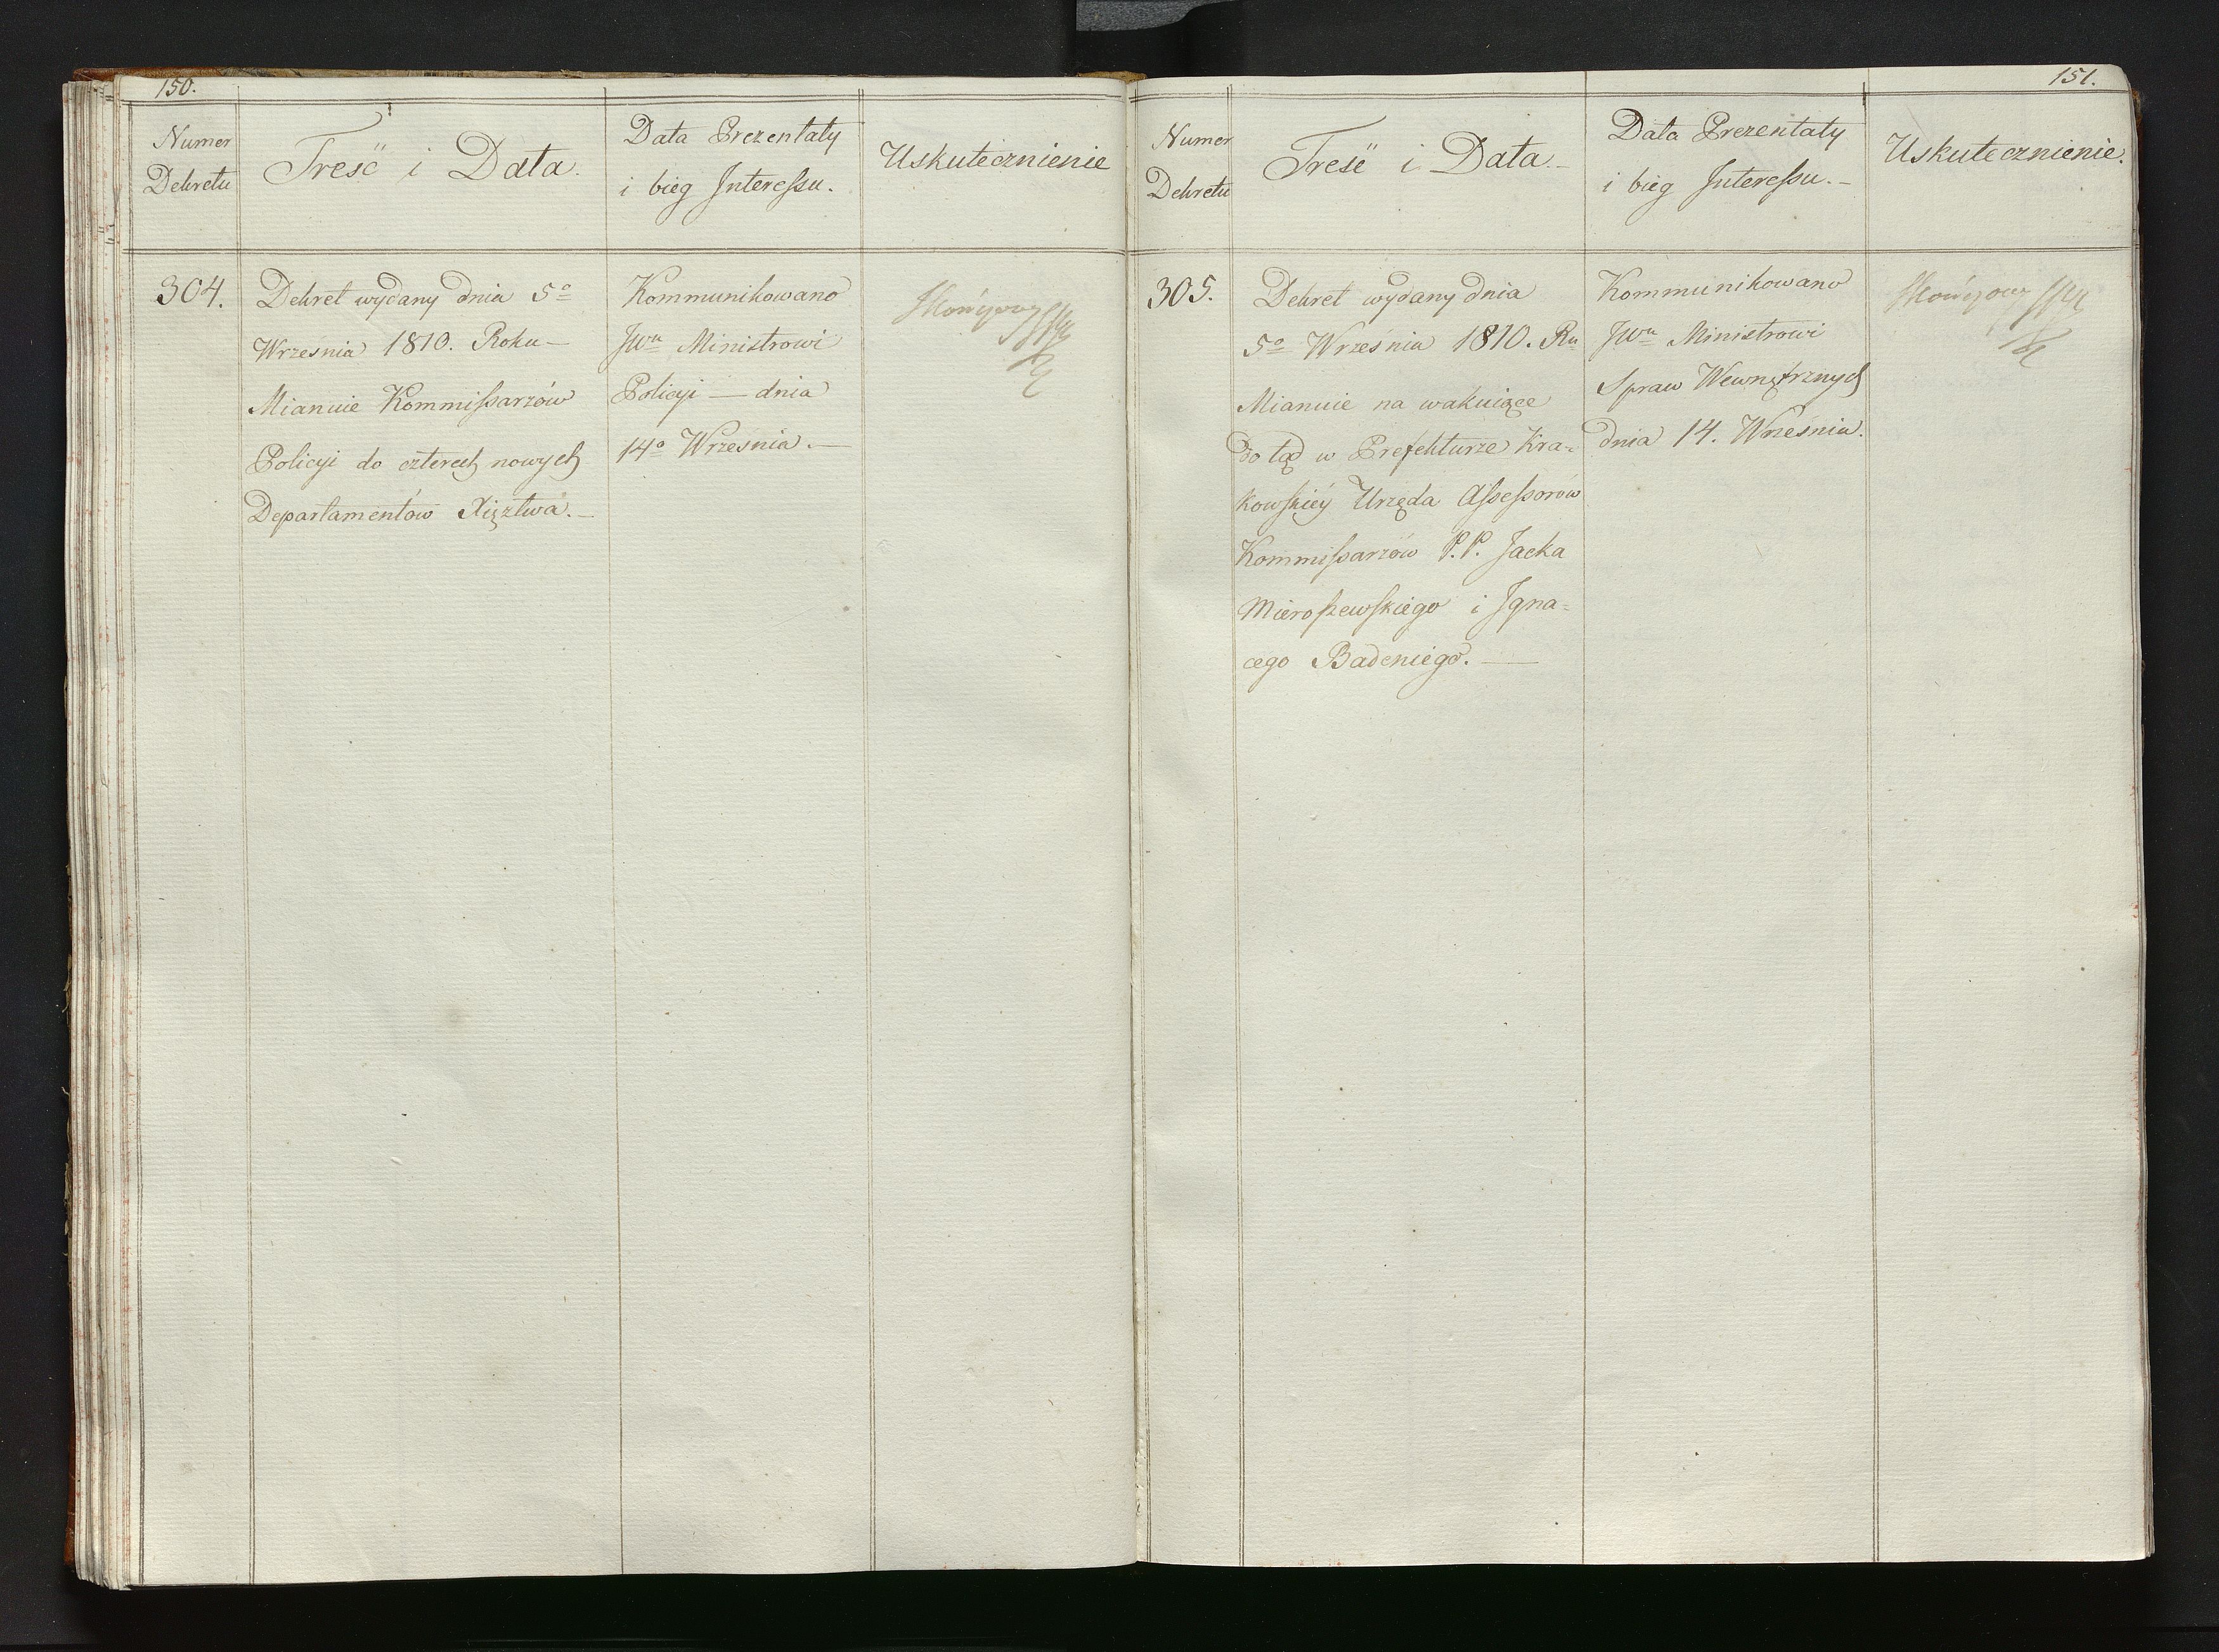 150.
Numer
Dekretu
Treść i Data.
Data Prezentaty
i bieg Interessu.
Uskutecznienie
304.
Dekret wydany dnia 5o
Wrzesnia 1810. Roku—
Mianuie Kommissarzów
Policyi do czterech nowych
Departamentów Xięztwa.—
Kommunikowano
JWu Ministrowi
Policyi — dnia
14o Wrzesnia.—
151.
Numer
Dekretu
Treść i Data.—
Data Prezentaty
i bieg Interessu.—
Uskutecznienie.
305.
Dekret wydany dnia
5o Wrzesnia 1810. Ru
Mianuie na wakuiące
do tąd w Prefekturze Kra=
kowskiéy Urzęda Assessorów
Kommissarzów P.P. Jacka
Mieroszewskiego i Igna=
cego Badeniego.—
Kommunikowano
JWu Ministrowi
Spraw Wewnętrznych
dnia 14. Wrzesnia.